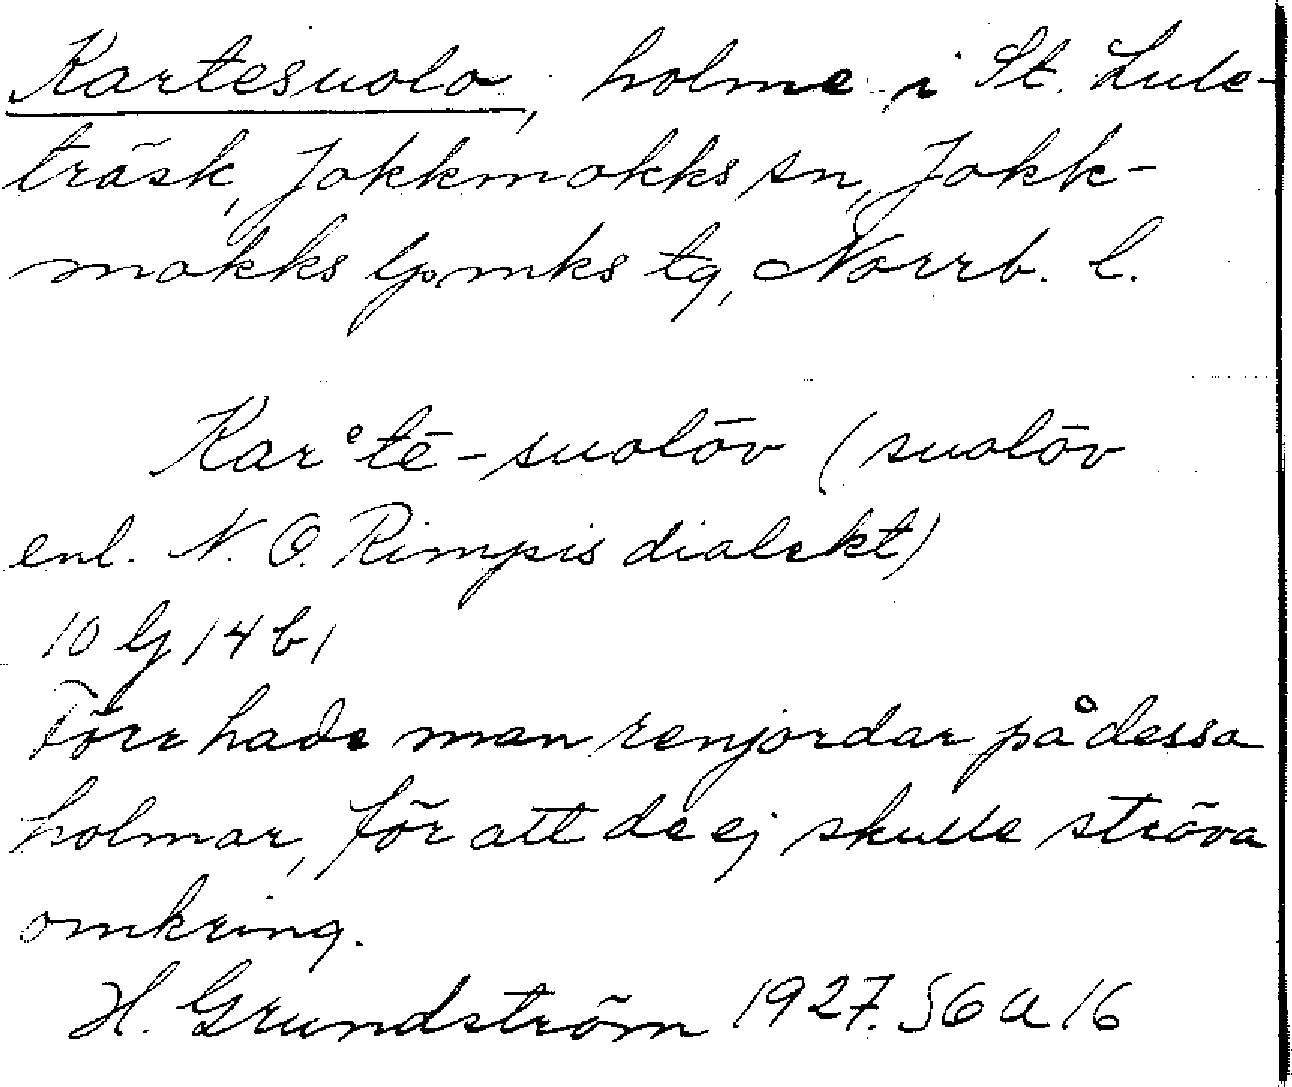 Kartesuolo, holme i St. Lule-
träsk, Jokkmokks sn, Jokk-
mokks lpmks tg, Norrb. l.
Kar°tē-suolōv (suolōv
enl. N. O. Rimpis dialekt)
10 G 14 b 1
Förr hade man renjordar på dessa
holmar, för att de ej skulle ströva
omkring.
H. Grundström 1927. S6 a 16